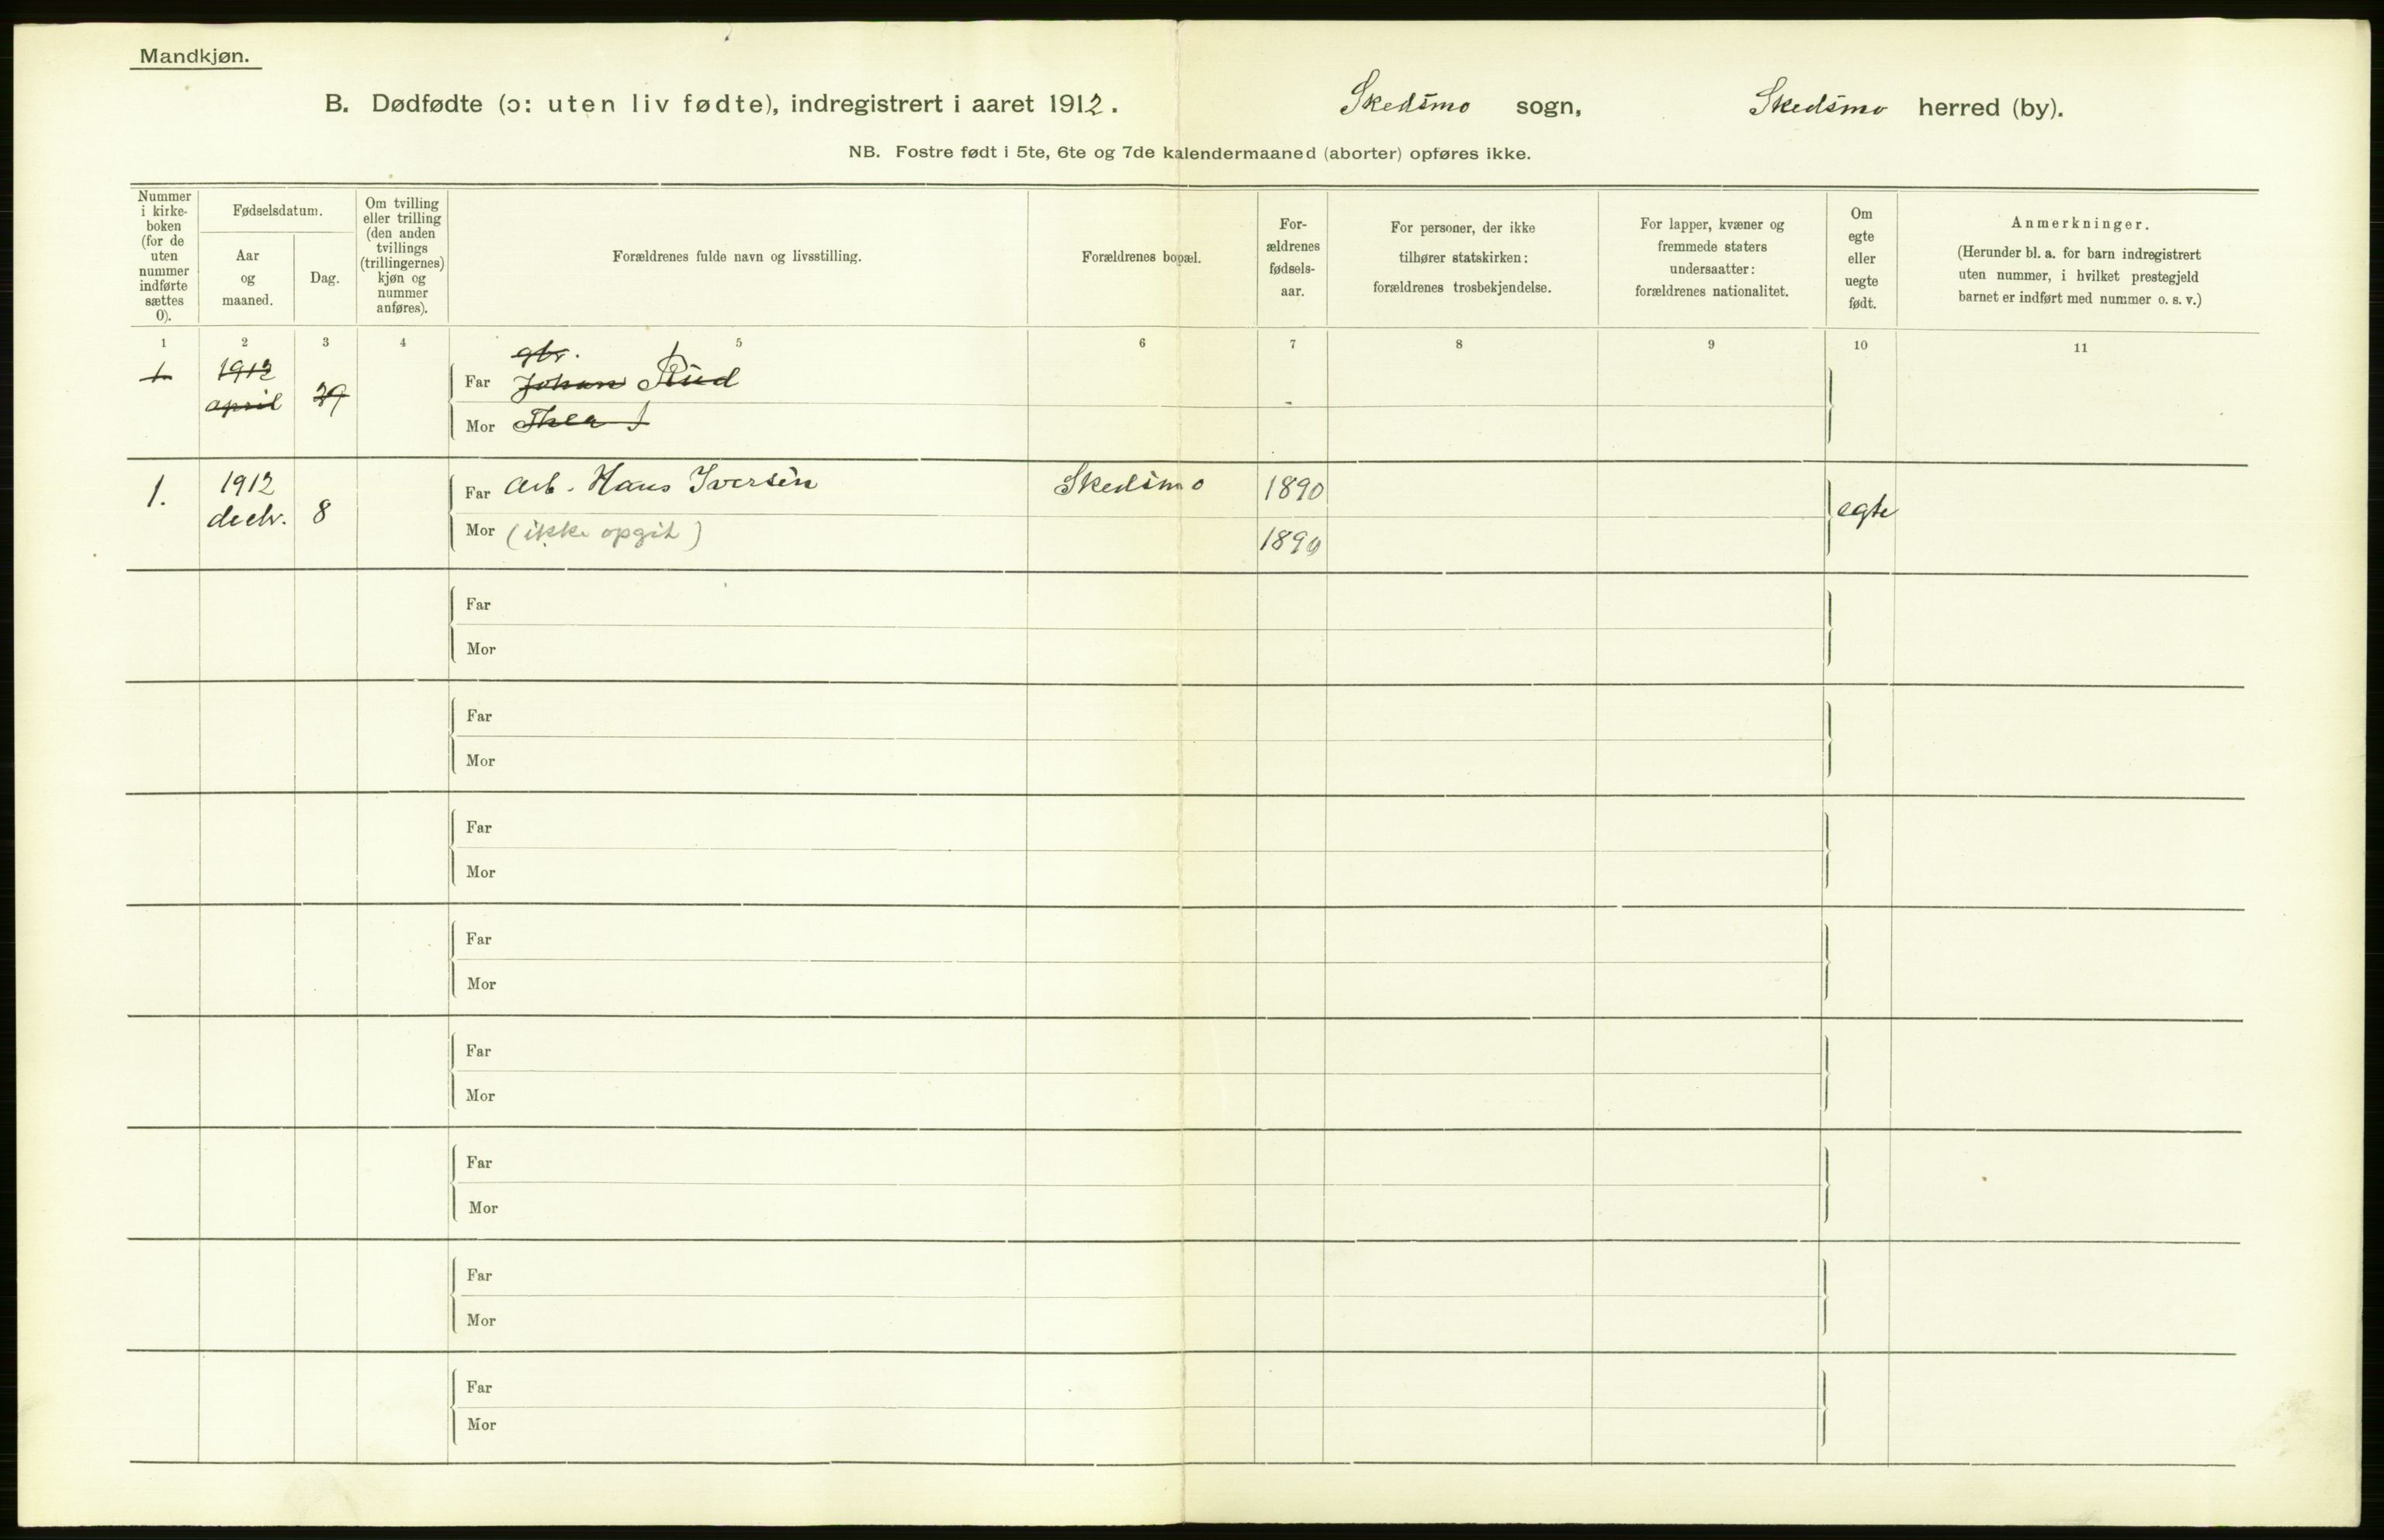 Mandkjøn.
B. Dødfødte (ɔ: uten liv fødte), indregistrert i aaret 1912. Skedsmo sogn, Skedsmo herred (by).
NB. Fostre født i 5te, 6te og 7de kalendermaaned (aborter) opføres ikke.
Nummer
i kirke-
boken
(for de
uten
nummer
indførte
sættes
0).
Fødselsdatum.
Aar
og
maaned.
Dag.
Om tvilling
eller trilling
(den anden
tvillings
(trillingernes)
kjøn og
nummer
anføres).
Forældrenes fulde navn og livsstilling.
Forældrenes bopæl.
For-
ældrenes
fødsels-
aar.
For personer, der ikke
tilhører statskirken:
forældrenes trosbekjendelse.
For lapper, kvæner og
fremmede staters
undersaatter:
forældrenes nationalitet.
Om
egte
eller
uegte
født.
Anmerkninger.
(Herunder bl. a. for barn indregistrert
uten nummer, i hvilket prestegjeld
barnet er indført med nummer o. s. v.)
1 2 3 4 5 6 7 8 9 10 11
gbr.
1. 1912 Far Johan Rud
april 29
Mor Thea J
1. 1912 Far Arb. Hans Iversen Skedsmo 1890
decbr. 8 egte
Mor (ikke opgit) 1890
Far
Mor
Far
Mor
Far
Mor
Far
Mor
Far
Mor
Far
Mor
Far
Mor
Far
Mor